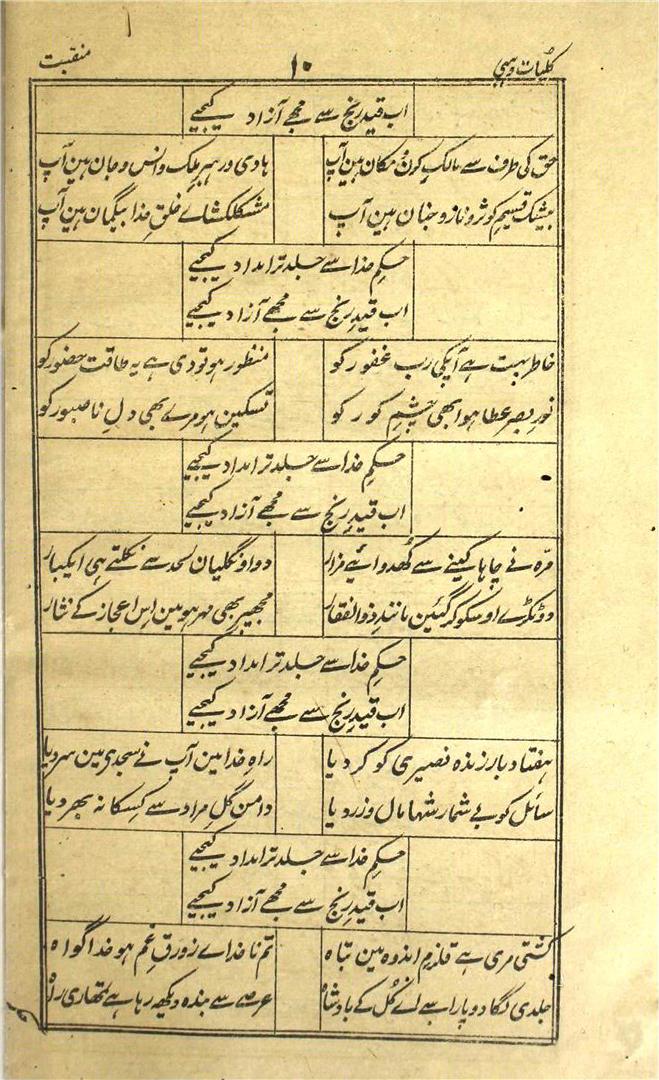 کلیات وہبی ۱۰ منقبت
اب قیدِ رنج سے مجھے آزاد کیجیے
حق کی طرف سے مالکِ کون و مکان ہین آپ ہادی و رہبرِ ملک و انس و جان ہین آپ
بیشک قسیمِ کوثر و نار و جنان ہین آپ مشکلکشاے خلقِ خدا بیگمان ہین آپ
حکمِ خدا سے جلد تر امداد کیجیے
اب قیدِ رنج سے مجھے آزاد کیجیے
خاطر بہت ہے آپکی ربِ غفور کو منظور ہو تو دی ہے یہ طاقت حضور کو
نورِ بصر عطا ہوا بھی چشمِ کور کو تسکین ہو مرے بھی دلِ ناصبور کو
حکمِ خدا سے جلد تر امداد کیجیے
اب قیدِ رنج سے مجھے آزاد کیجیے
مرہ نے چاہا کینے سے کھدوائیے مزار دو اونگلیان لحد سے نکلتے ہی ایکبار
دو ٹکڑے اوسکو کر گئین مانندِ ذوالفقار مجھپر بھی مہر ہو مین اس اعجاز کے نثار
حکمِ خدا سے جلد تر امداد کیجیے
اب قیدِ رنج سے مجھے آزاد کیجیے
ہفتاد بار زندہ نصیری کو کر دیا راہِ خدا مین آپ نے سجدی مین سر دیا
سائل کو بے شمار شہا مال و زر دیا دامن گلِ مراد سے کسکا نہ بھر دیا
حکمِ خدا سے جلد تر امداد کیجیے
اب قیدِ رنج سے مجھے آزاد کیجیے
کشتی مری ہے قلزمِ اندوہ مین تباہ تم ناخداے زورقِ غم ہو خدا گواہ
جلدی لگا دو پار اسے اے کُل کے بادشاہ عرصے سے بندہ دیکھ رہا ہے تمھاری راہ